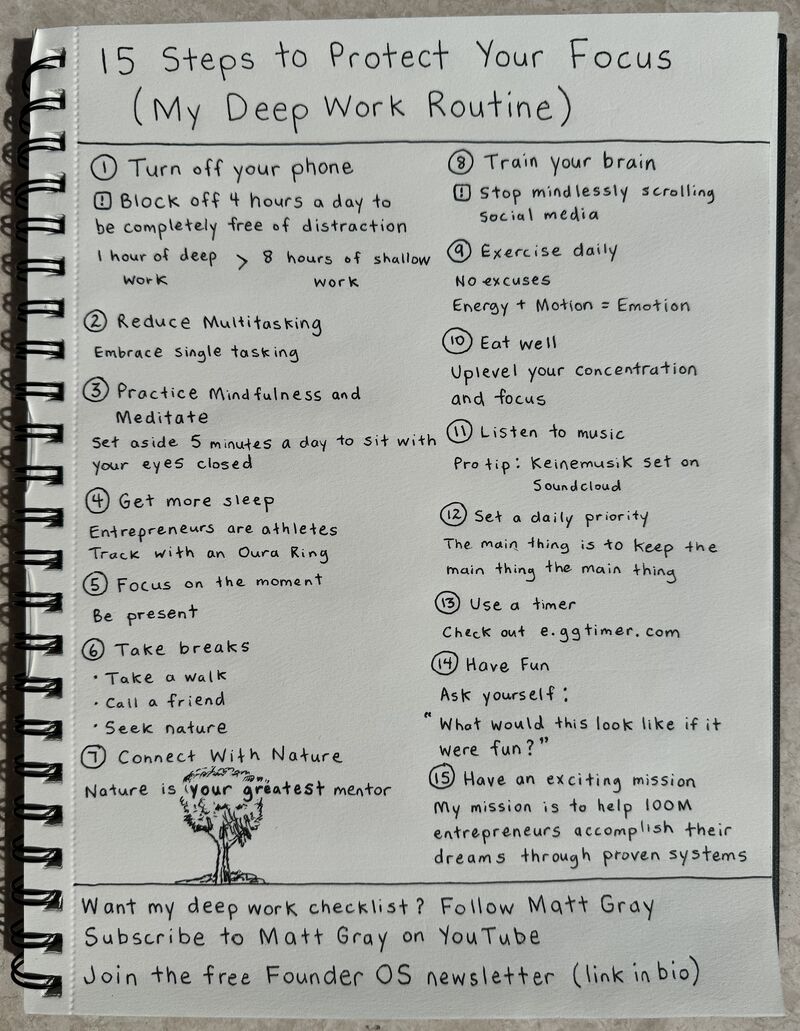 15 Steps to Protect Your Focus
(My Deep Work Routine)
① Turn off your phone
! Block off 4 hours a day to
be completely free of distraction
1 hour of deep > 8 hours of shallow
work work
② Reduce Multitasking
Embrace single tasking
③ Practice Mindfulness and
Meditate
Set aside 5 minutes a day to sit with
your eyes closed
④ Get more sleep
Entrepreneurs are athletes
Track with an Oura Ring
⑤ Focus on the moment
Be present
⑥ Take breaks
• Take a walk
• Call a friend
• Seek nature
⑦ Connect With Nature
Nature is your greatest mentor
⑧ Train your brain
! Stop mindlessly scrolling
social media
⑨ Exercise daily
No excuses
Energy + Motion = Emotion
⑩ Eat well
Uplevel your concentration
and focus
⑪ Listen to music
Pro tip: Keinemusik set on
Soundcloud
⑫ Set a daily priority
The main thing is to keep the
main thing the main thing
⑬ Use a timer
Check out e.ggtimer.com
⑭ Have Fun
Ask yourself:
"What would this look like if it
were fun?"
⑮ Have an exciting mission
My mission is to help 100M
entrepreneurs accomplish their
dreams through proven systems
Want my deep work checklist? Follow Matt Gray
Subscribe to Matt Gray on YouTube
Join the free Founder OS newsletter (link in bio)